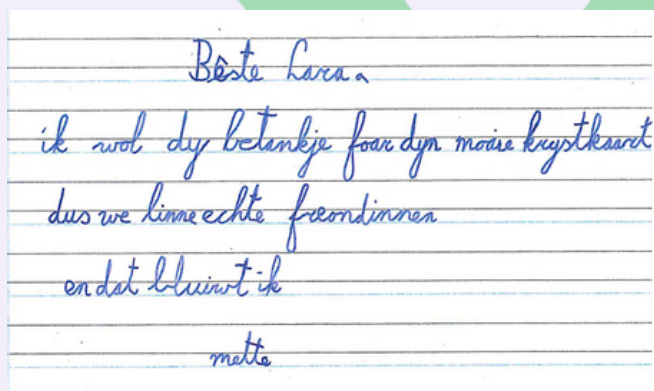 Bêste Lara,
ik wol dy betankje foar dyn moaie krystkaart
dus we binne echte freondinnen
en dat bliuwt ik
mette